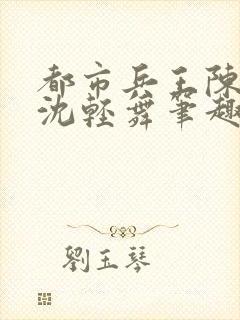 都市兵王陳
沈輕舞筆趣
劉玉琴